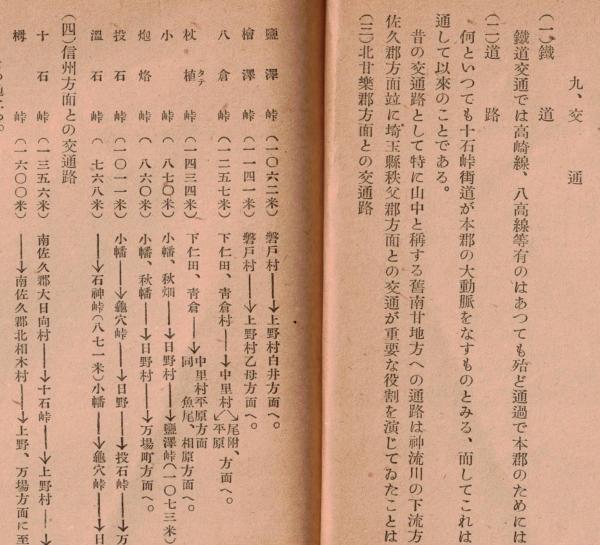 九、交通
(一)鐵道
鐵道交通では高崎線、八高線等有のはあつても殆ど通過で本郡のためには
(二)道路
何といつても十石峠街道が本郡の大動脈をなすものとみる、而してこれは
通して以來のことである。
昔の交通路として特に山中と稱する舊南甘地方への通路は神流川の下流方
佐久郡方面竝に埼玉縣秩父郡方面との交通が重要な役割を演じてゐたことは
(三)北甘樂郡方面との交通路
鹽澤峠(一〇六二米)磐戸村――→上野村白井方面へ。
檜澤峠(一一四一米)磐戸村――→上野村乙母方面へ。
八倉峠(一二五七米)下仁田、靑倉村――→中里村 尾附、平原 方面へ。
杖植タテ峠(一四三四米)下仁田、靑倉――→中里村平原方面 同 魚尾、相原方面へ。
小峠(八七〇米)小幡、秋畑――→日野村――→鹽澤峠(一〇七三米)
炮烙峠(八六〇米)小幡、秋幡――→日野村――→万場町方面へ。
投石峠(一〇一一米)小幡――→龜穴峠――→日野――→投石峠――→万
溫石峠(七六八米)――→石神峠(八七一米)小幡――→龜穴峠――→日
(四)信州方面との交通路
十石峠(一三五六米)南佐久郡大日向村――→十石峠――→上野村――→
栂峠(一六〇〇米)――→南佐久郡北相木村――→上野、万場方面に至